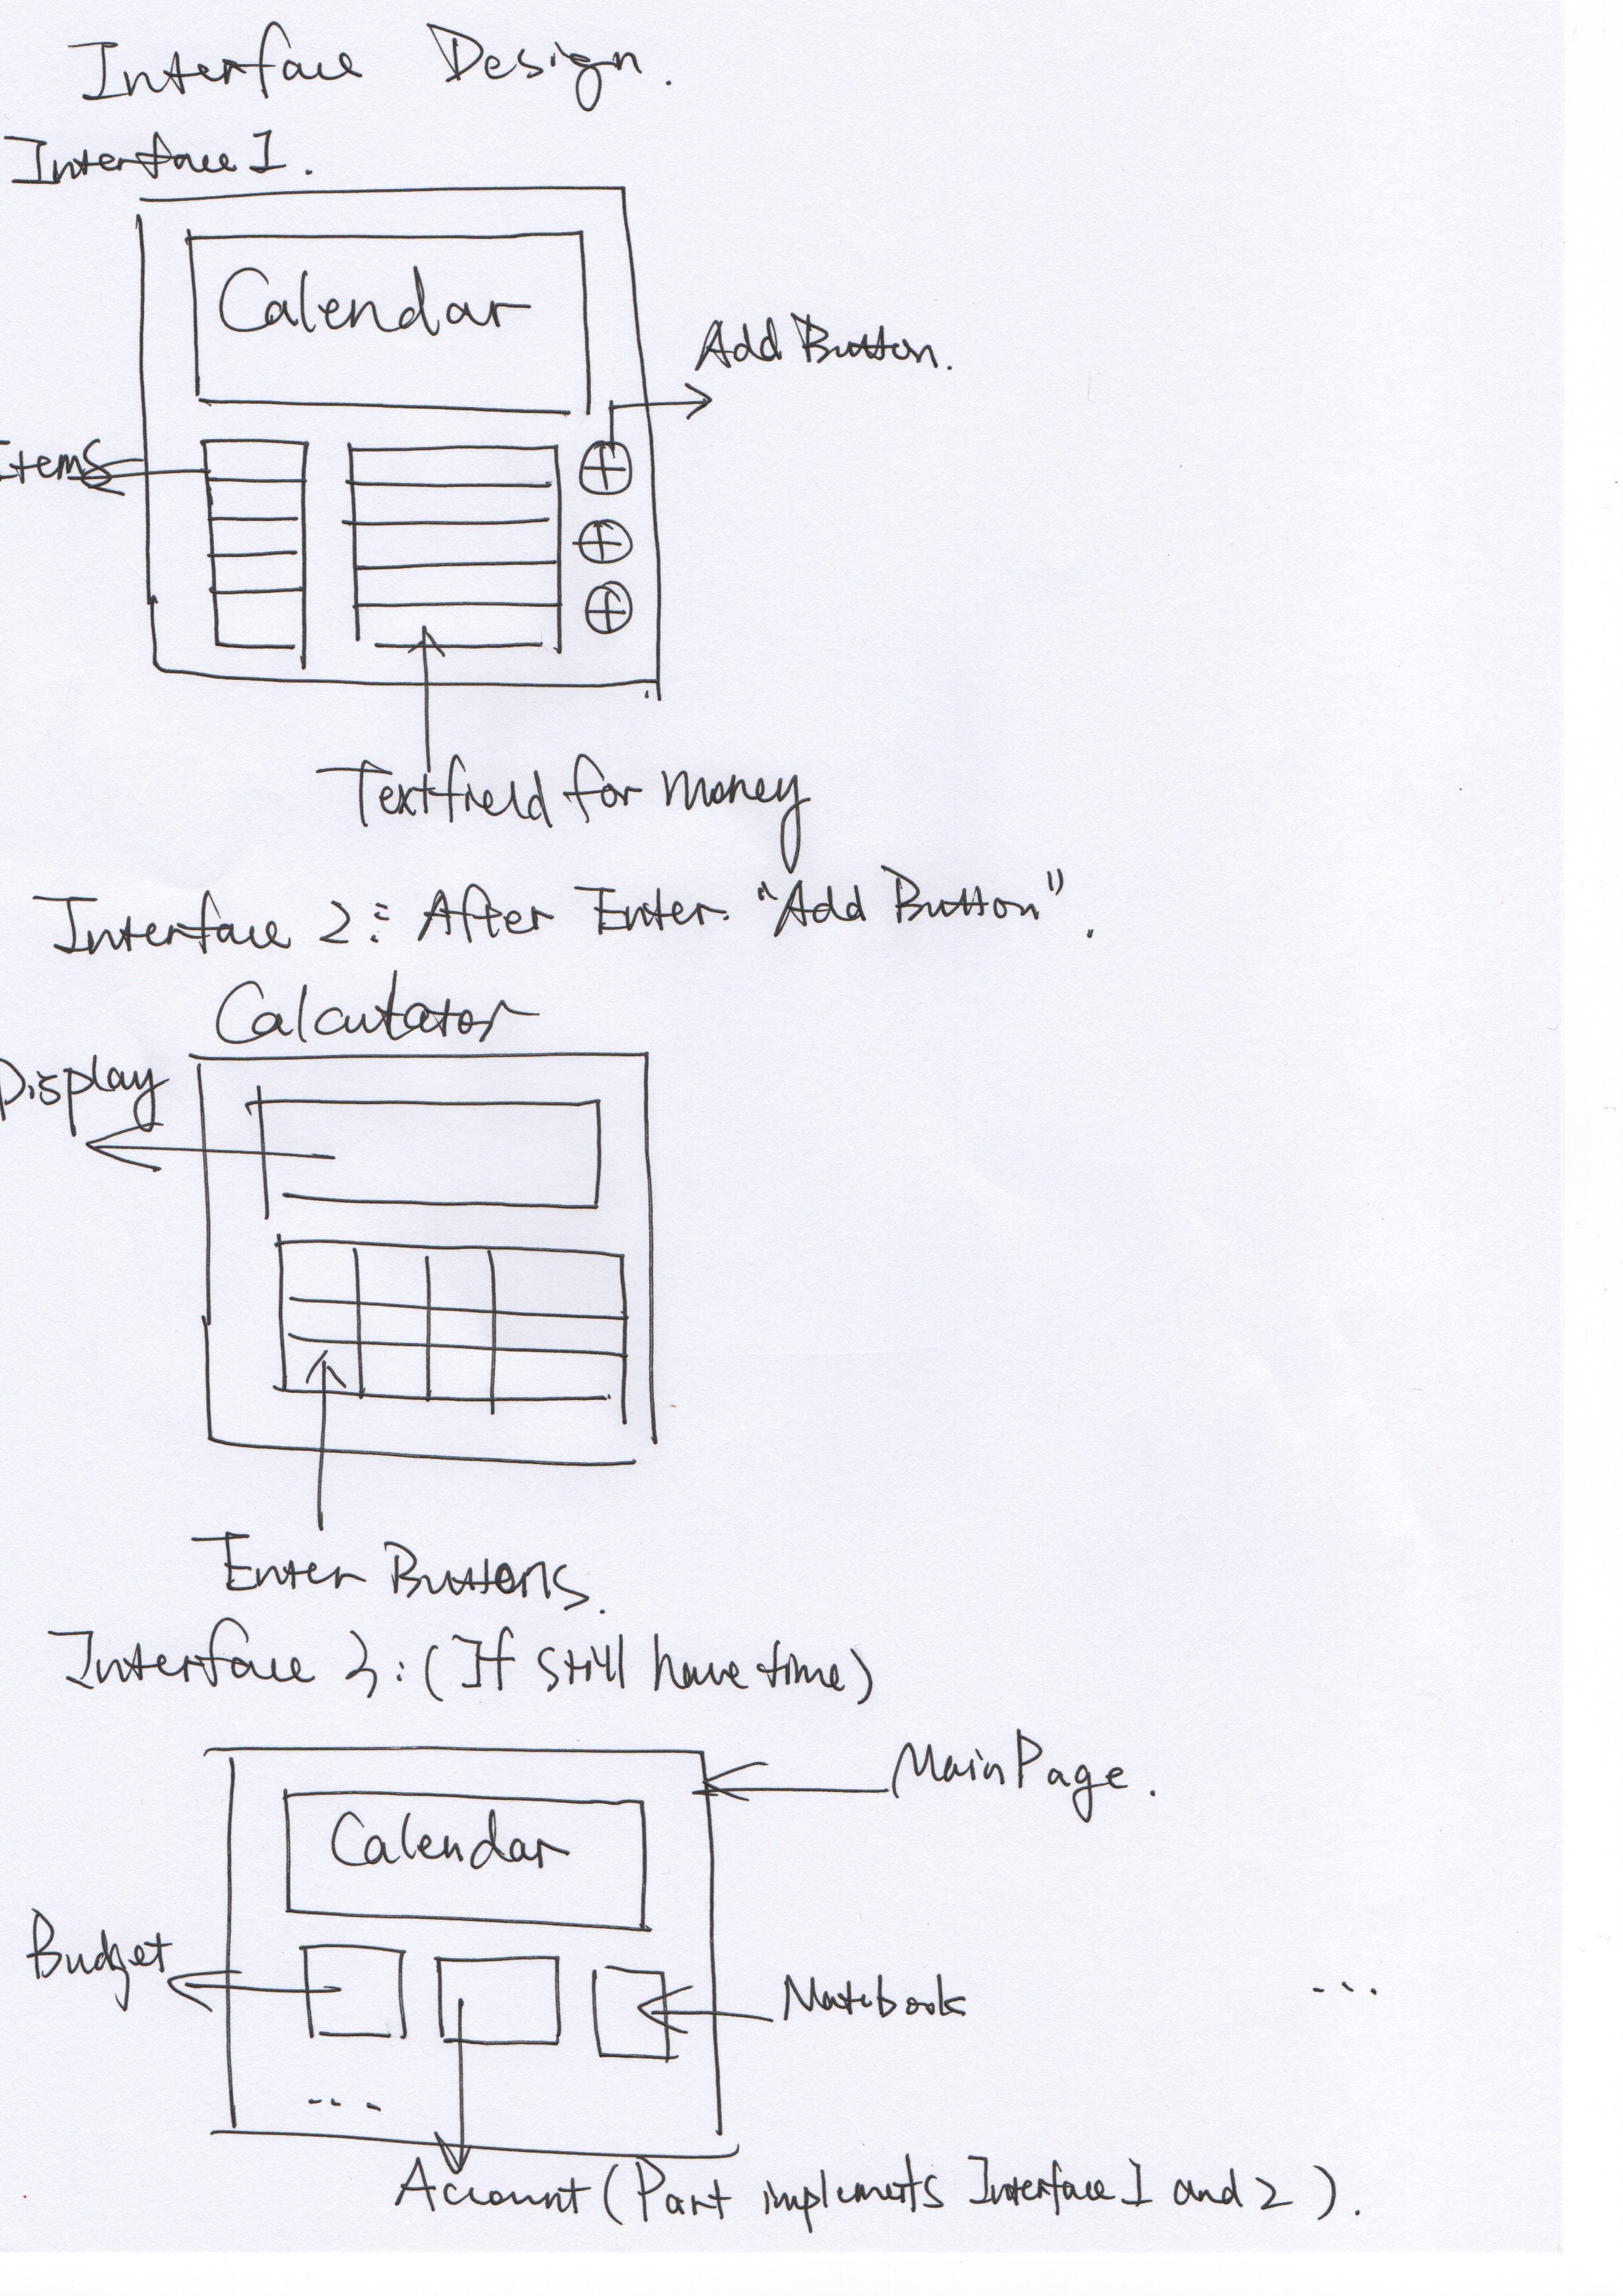 Interface Design.
Interface 1.
Calendar
Add Button.
Items
+
+
+
Textfield for money
Interface 2: After Enter. "Add Button".
Calculator
Display
Enter Buttons.
Interface 3: (If still have time)
Main Page.
Calendar
Budget
Notebook
...
...
Account (Part implements Interface 1 and 2).